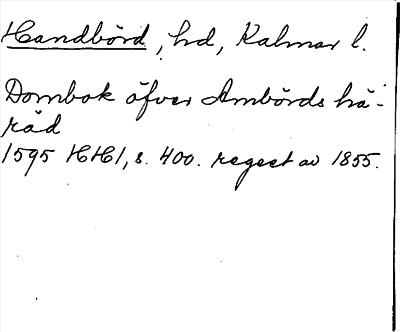 Handbörd, hd, Kalmar l.
Dombok öfver Ambörds hä-
räd
1595 HH1, s. 400. regest av 1855.